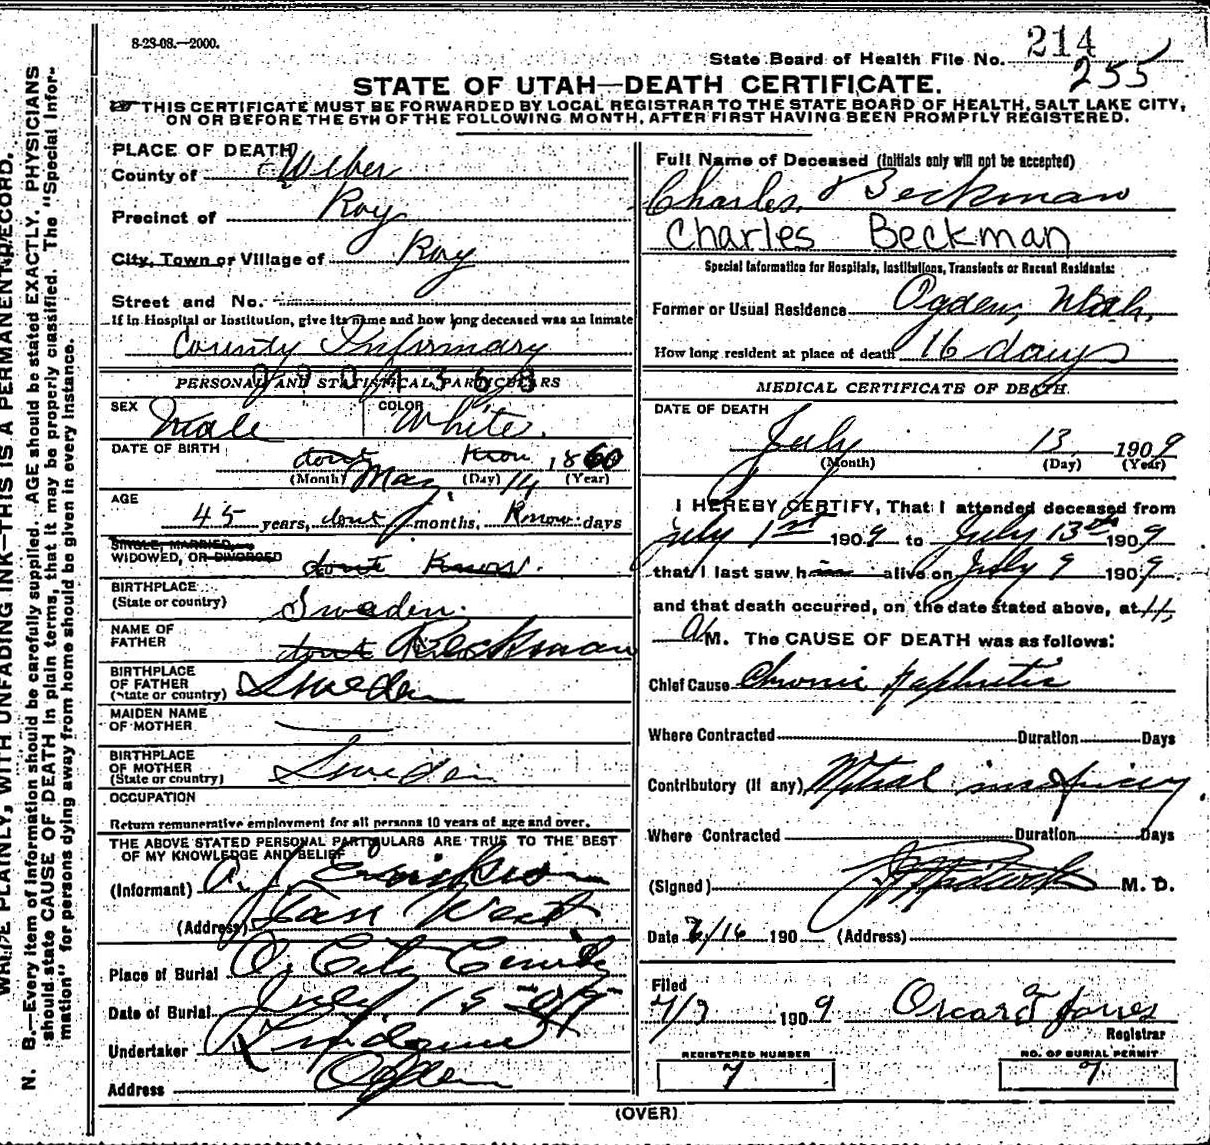 8-23-08.—2000.
State Board of Health File No. 214
255
STATE OF UTAH—DEATH CERTIFICATE.
THIS CERTIFICATE MUST BE FORWARDED BY LOCAL REGISTRAR TO THE STATE BOARD OF HEALTH, SALT LAKE CITY,
ON OR BEFORE THE 5TH OF THE FOLLOWING MONTH, AFTER FIRST HAVING BEEN PROMPTLY REGISTERED.
PLACE OF DEATH
County of Weber
Precinct of Roy
City, Town or Village of Roy
Street and No.
If in Hospital or Institution, give its name and how long deceased was an Inmate
County Infirmary
PERSONAL AND STATISTICAL PARTICULARS
SEX Male COLOR White.
DATE OF BIRTH dont Know 1860
(Month) May (Day) 14 (Year)
AGE
45 years, dont months, Know days
SINGLE MARRIED,
WIDOWED, OR DIVORCED dont Know.
BIRTHPLACE
(State or country) Sweden.
NAME OF
FATHER dont Beckman
BIRTHPLACE
OF FATHER
(State or country) Sweden
MAIDEN NAME
OF MOTHER
BIRTHPLACE
OF MOTHER
(State or country) Sweden
OCCUPATION
Return remunerative employment for all persons 10 years of age and over.
THE ABOVE STATED PERSONAL PARTICULARS ARE TRUE TO THE BEST
OF MY KNOWLEDGE AND BELIEF
(Informant)
(Address) West
Place of Burial O. City
Date of Burial July 15
Undertaker
Address Ogden
Full Name of Deceased (Initials only will not be accepted)
Charles Beckman
Charles Beckman
Special Information for Hospitals, Institutions, Transients or Recent Residents:
Former or Usual Residence Ogden, Utah.
How long resident at place of death 16 days
MEDICAL CERTIFICATE OF DEATH.
DATE OF DEATH
July 13 1909
(Month) (Day) (Year)
I HEREBY CERTIFY, That I attended deceased from
July 1st 1909 to July 13th 1909
that I last saw him alive on July 9 1909.
and that death occurred, on the date stated above, at 11
A M. The CAUSE OF DEATH was as follows:
Chief Cause Chronic Nephritis
Where Contracted Duration Days
Contributory (if any) Mitral
Where Contracted Duration Days
(Signed) M. D.
Date 7/16 190 (Address)
Filed
7/7 1909 Oscar T Jones
Registrar
REGISTERED NUMBER
7
NO. OF BURIAL PERMIT
7
(OVER)
N. B.—Every item of information should be carefully supplied. AGE should be stated EXACTLY. PHYSICIANS
should state CAUSE OF DEATH in plain terms, that it may be properly classified. The "Special Infor-
mation" for persons dying away from home should be given in every instance.
WRITE PLAINLY, WITH UNFADING INK—THIS IS A PERMANENT RECORD.